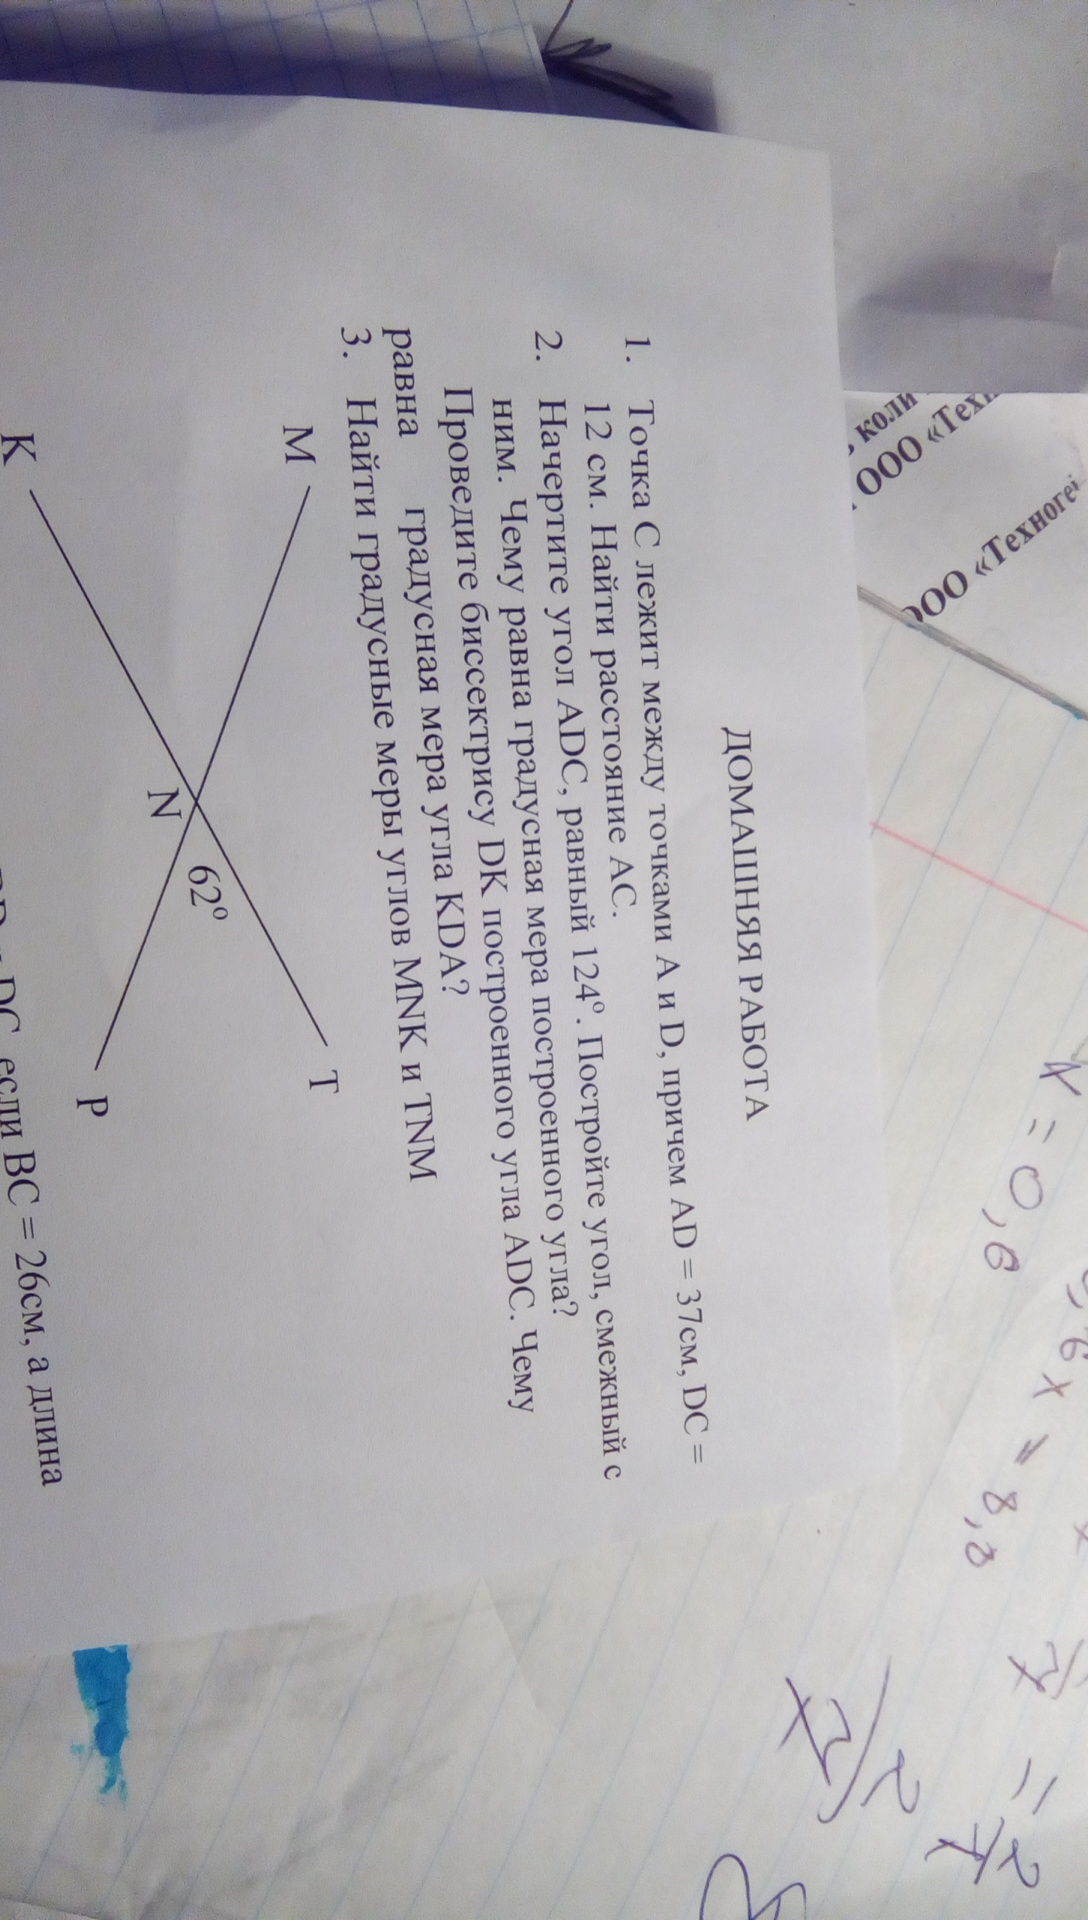 ДОМАШНЯЯ РАБОТА
1. Точка С лежит между точками А и D, причем AD = 37см, DC =
12 см. Найти расстояние АС.
2. Начертите угол ADC, равный 124°. Постройте угол, смежный с
ним. Чему равна градусная мера построенного угла?
Проведите биссектрису DK построенного угла ADC. Чему
равна градусная мера угла KDA?
3. Найти градусные меры углов MNK и TNM
M
T
62°
N
K
P
DC, если ВС = 26см, а длина
коли
ООО «Тех
ООО «Техноге
= 0,6
x = 8,8